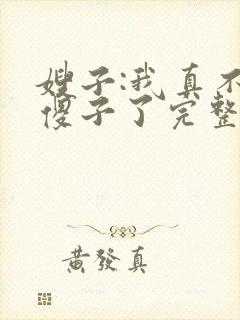 嫂子:我真不
傻子了完整
黄發真